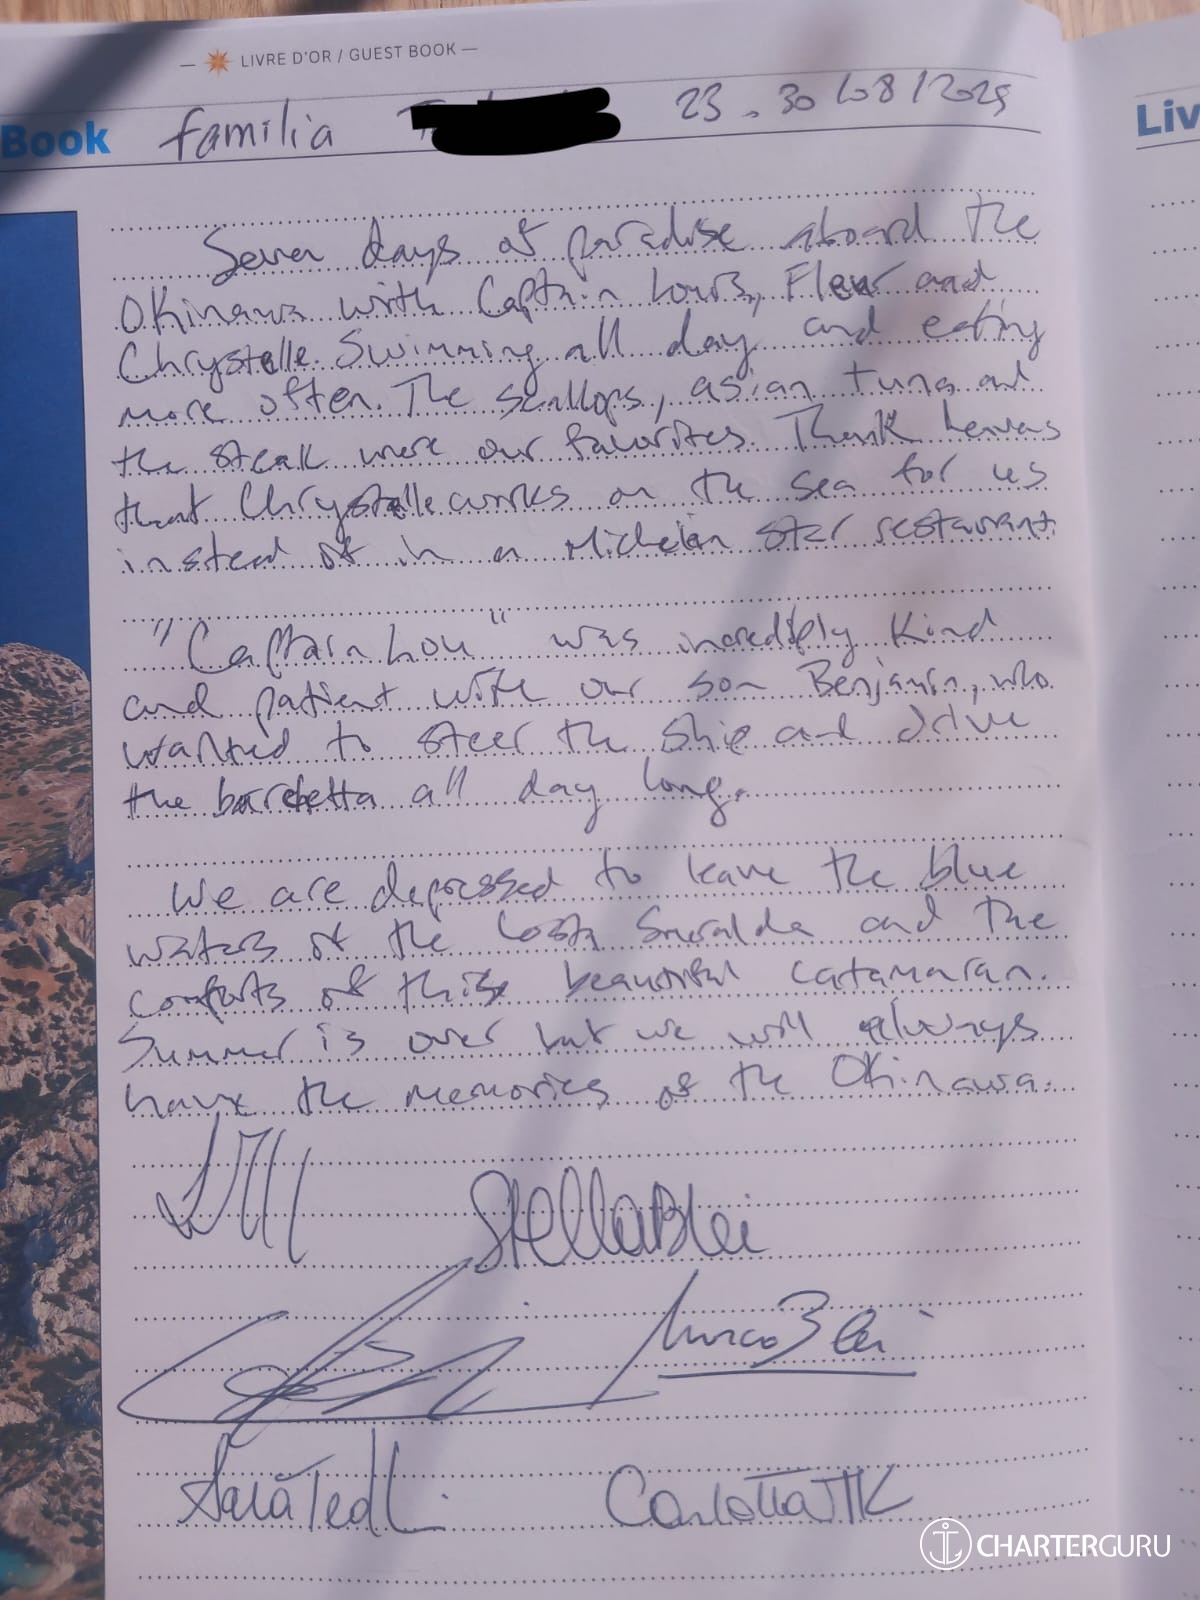 — LIVRE D'OR / GUEST BOOK —
Book familia 23.30/08/2025
Liv
Seven days of paradise aboard the
Okinawa with Captain Louis, Fleur and
Chrystelle. Swimming all day and eating
more often. The scallops, asian tuna and
the steak were our favorites. Thank heavens
that Chrystelle works on the sea for us
instead of in a Michelin star restaurant.
"Captain Lou" was incredibly kind
and patient with our son Benjamin, who
wanted to steer the ship and drive
the barchetta all day long.
We are depressed to leave the blue
waters of the Costa Smeralda and the
comforts of this beautiful catamaran.
Summer is over but we will always
have the memories of the Okinawa.
Stella Blei
Marco Blei
Sara Ted
Carlotta TTK
CHARTERGURU